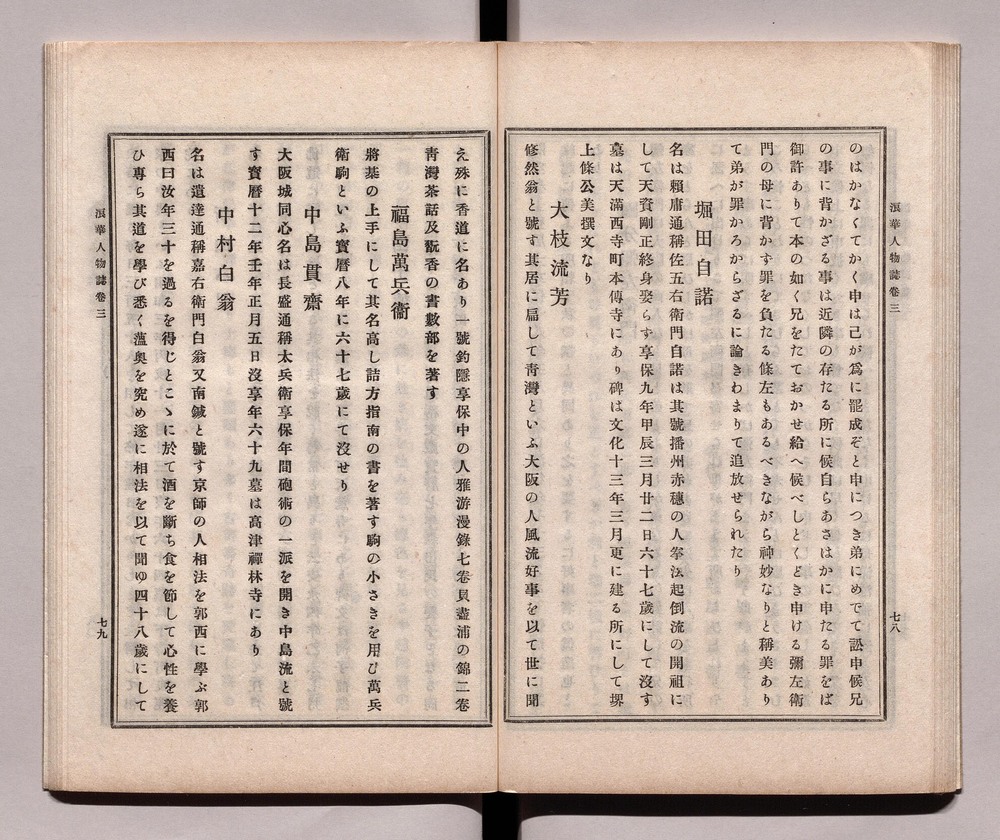 浪華人物誌卷三
七八
のはかなくてかく申は己が爲に罷成ぞと申につき弟にめでて訟申候兄
の事に背かざる事は近隣の存たる所に候自らあさはかに申たる罪をば
御許ありて本の如く兄をたておかせ給へ候べしとくどき申ける彌左衛
門の母に背かす罪を負たる條左もあるべきながら神妙なりと稱美あり
て弟が罪かろからざるに論きわまりて追放せられたり
堀田自諾
名は賴庸通稱佐五右衛門自諾は其號播州赤穗の人拳法起倒流の開祖に
して天資剛正終身娶らす享保九年甲辰三月廿二日六十七歲にして沒す
墓は天滿西寺町本傳寺にあり碑は文化十三年三月更に建る所にして堺
上條公美撰文なり
大枝流芳
修然翁と號す其居に扁して靑灣といふ大阪の人風流好事を以て世に聞
え殊に香道に名あり一號釣隱享保中の人雅游漫錄七卷貝盡浦の錦二卷
靑灣茶話及翫香の書數部を著す
福島萬兵衞
將碁の上手にして其名高し詰方指南の書を著す駒の小さきを用ひ萬兵
衛駒といふ寶曆八年に六十七歲にて沒せり
中島貫齋
大阪城同心名は長盛通稱太兵衛享保年間砲術の一派を開き中島流と號
す寶曆十二年壬年正月五日沒享年六十九墓は高津禪林寺にあり
中村白翁
名は遺達通稱嘉右衛門白翁又南鍼と號す京師の人相法を郭西に學ぶ郭
西曰汝年三十を過るを得じとこゝに於て酒を斷ち食を節して心性を養
ひ專ら其道を學び悉く薀奧を究め遂に相法を以て聞ゆ四十八歲にして
浪華人物誌卷三
七九